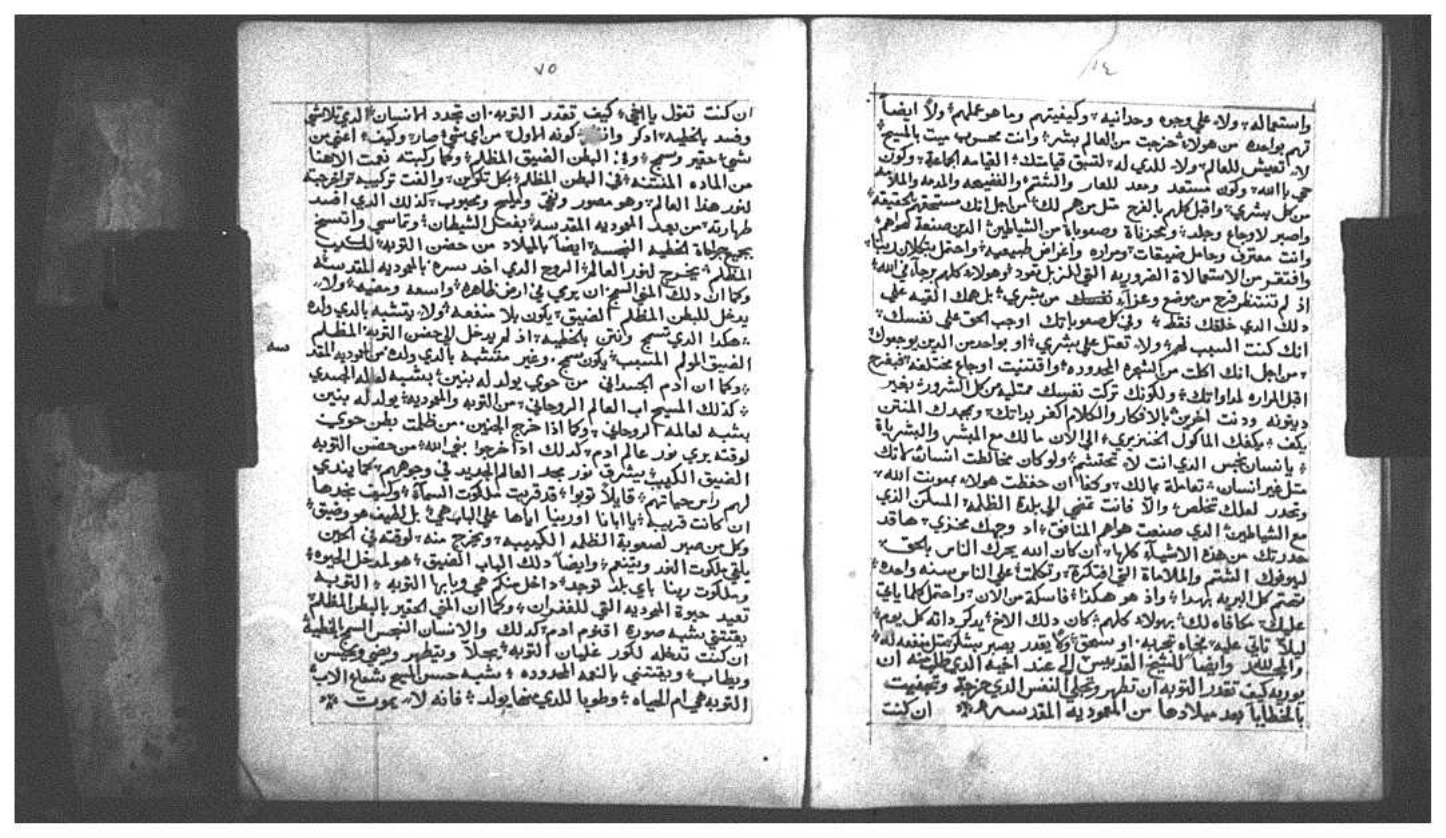 ٧٤
واستعماله ولا علي وجوه وحدانيه وكيفيتهم وما هو عملهم ولا ايضاً
تهم بواحده من هولاء خرجت من العالم بشر وانت محسوب ميت بالمسيح
لا تعيش للعالم ولا للدي له لتسبق قيامتك القيامه الجامعة وكون
حي بالله وكون مستعد ومعد للعار والشتم والفضيحه والمدمه والملامه
من كل بشري واقبل كلهم بالفرح مثل من هم لك من اجل انك مستحقهم بالحقيقه
واصبر لاوجاع وجلد ومحزناة وصعوباة من الشياطين الدين صنعة هواهم
وانت معترف وحامل ضيقات ومراره واعراض طبيعيه واحتمل بتكلان ربنا
وافتقر من الاستعمالاة الضروريه التي لمزبل تعود وهولاء كلهم برجاء في الله
اذ لم تنتظر فرج من موضع وعزاء نفسك من بشري بل همك القيه علي
دلك الدي خلقك فقط وفي كل صعوباتك اوجب الحق علي نفسك
انك كنت السبب لهم ولا تعتل علي بشري او بواحد من الدين يوجعوك
من اجل انك اكلت من الشجره المحدوده واقتنيت اوجاع مختلفه فبفرح
اقبل المراره لمداواتك ولكونك تركت نفسك ممتليه من كل الشرور بغير
دينونه ودنت اخرين بالافكار والكلام اكفر بداتك وبجهدك المنتن
يكف يكفك الماكول الخنزيري الي الان ما لك مع المبشر والبشرياة
يا انسان نجس الدي انت لا تحتشم ولو كان مخالطت انسان كانك
متل غير انسان تعامله بمالك وكفا ان حفظت هولاء بمعونت الله
وتحدر لعلك تخلص والا فانت تمضي الي بلدة الظلمه المسكن الدي
مع الشياطين الدي صنعت هواهم المنافق اد وجهك مخزي ها قد
حدرتك من هذه الاشياء كلها ان كان الله يحرك الناس بالحق
ليوفوك الشتم والملاماة التي افتكرة وتكلمة علي الناس سنه واحده
تضتم كل البريه بهدا واذ هو هكدا فاسكة من الان واحتمل كلما ياتي
عليك مكافاه لك بهولاء كلهم كان دلك الاخ يدكر داته كل يوم
ليلاً تاتي عليه فجاه تجربه او سحق ولا يقدر يصبر بشكر متل منفعه له
والمجد لله وايضا للشيخ القديس الي عند اخيه الدي طلب منه ان
يوريه كيف تقدر التوبه ان تطهر وتجلي النفس الدي خزجة وتجفيت
بالخطايا بعد ميلادها من المعمودية المقدسه
ان كنت
٧٥
ان كنت تقول يا اخي كيف تقدر التوبه ان تجدد الانسان الدي تلاشي
وفسد بالخطيه ادكر وانت كونه الاول من اي شي صار وكيف اعني من
شي حقير وسمج وفي البطن الضيق المظلم وكما ركبته نعمت الاهنا
من الماده المنتنه في البطن المظلم بكل تكوين والفت تركيبه تم اخرجته
لنور هذا العالم وهو مصور ونقي ومليح ومحبوب كدلك الدي افسد
طهارته من بعد المعموديه المقدسه بفعل الشيطان وتماسي واتسخ
بجميع جراحاة الخطيه النجسه ايضا بالميلاد من حضن التوبه الكئيب
المظلم يخرج لنور العالم الروح الدي اخد سره بالمعموديه المقدسه
وكما ان دلك المني السمج ان يرمي في ارض ظاهره واسعه ومضيه ولا
يدخل للبطن المظلم الضيق يكون بلا منفعه ولا يتشبه بالدي ولده
هكدا الدي تسمج وانتن بالخطيه اذ لم يدخل الي حضن التوبه المظلم
الضيق المولم المسبب يكون سمج وغير متشبه بالدي ولده من المعموديه المقد
سه
وكما ان ادم الجسداني من حوي يولد له بنين بشبه لعالمه الجسدي
كذلك المسيح اب العالم الروحاني من التوبه والمعموديه يولد له بنين
بشبه لعالمه الروحاني وكما اذا خرج الجنين من ظلمت بطن حوي
لوقته يري نور عالم ادم كدلك اذا خرجوا بني الله من حضن التوبه
الضيق الكئيب يشرق نور مجد العالم الجديد في وجوههم كما يندي
لهم راس حياتهم قايلا توبوا قد قربت ملكوت السماء وكيف نجدها
ان كانت قريبه يا ابانا اورينا اياها علي الباب هي بل لطيف هو وضيق
وكل من صبر لصعوبة الظلمه الكئيبه ويخرج منه لوقته في الحين
يلقي ملكوت الله ويتنعم وايضا دلك الباب الضيق هو لمدخل الحيوه
وملكوت ربنا باي بلد توجد داخل منكم هي وبابها التوبه التوبه
تعيد حيوة المعموديه التي للغفران وكما ان المني الحقير بالبطن المظلم
يقتني شبه صورة اقنوم ادم كدلك والانسان النجس السمج بالخطيه
ان كنت تدخله لكور غليان التوبه يجلا ويتطهر ويضي ويحسن
ويطاب ويقتني بالنعمه المجدوده شبه حسن المسيح شعاع الاب
التوبه هي ام الحياه وطوبا للدي منها يولد فانه لا يموت